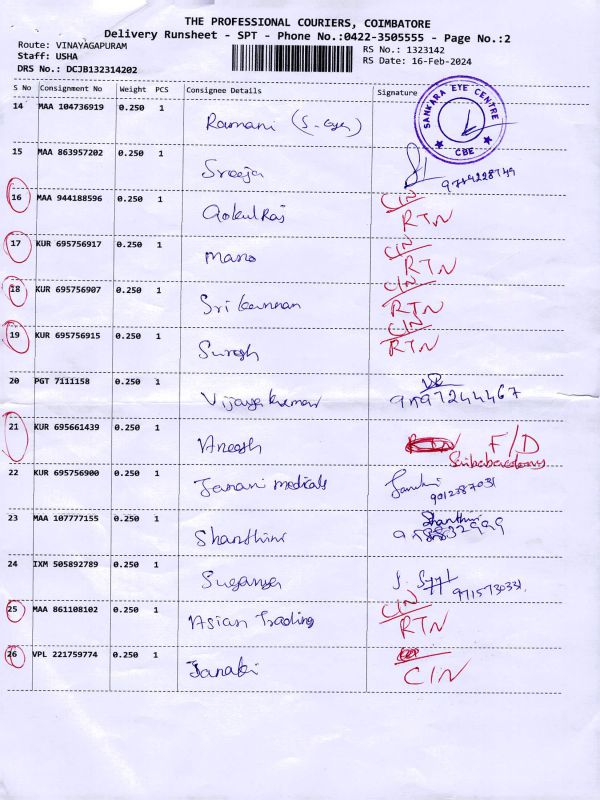 THE PROFESSIONAL COURIERS, COIMBATORE
Delivery Runsheet - SPT - Phone No.:0422-3505555 - Page No.:2
Route: VINAYAGAPURAM
RS No.: 1323142
Staff: USHA
RS Date: 16-Feb-2024
DRS No.: DCJB132314202
S No Consignment No Weight PCS Consignee Details Signature
14 MAA 104736919 0.250 1 Ramani (S-eye)
SANKARA EYE CENTRE
CBE
15 MAA 863957202 0.250 1 Sreeja
16 MAA 944188596 0.250 1 Gokulraj CIN
RTN
17 KUR 695756917 0.250 1 Mano CIN
RTN
18 KUR 695756907 0.250 1 Sri kannan CIN
RTN
19 KUR 695756915 0.250 1 Suresh CIN
RTN
20 PGT 7111158 0.250 1 Vijaya kumar
9597244467
21 KUR 695661439 0.250 1 Aneesh F/D
22 KUR 695756900 0.250 1 Janani medicals
23 MAA 107777155 0.250 1 Shanthini Shanthini
24 IXM 505892789 0.250 1 Suganya
9715730331
25 MAA 861108102 0.250 1 Asian Trading CIN
RTN
26 VPL 221759774 0.250 1 Janaki
CIN